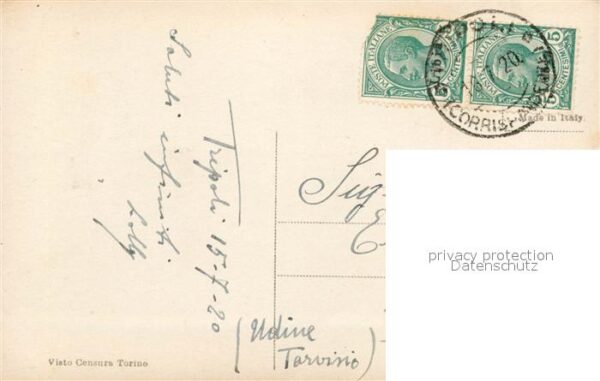 Saluti infiniti
Lolly
Tripoli 15-7-20
POSTE ITALIANE
POSTE ITALIANE
CENT. 5
20
(CORRISP
Made in Italy.
Sig
privacy protection
Datenschutz
(Udine
Tarvisio)
Visto Censura Torino